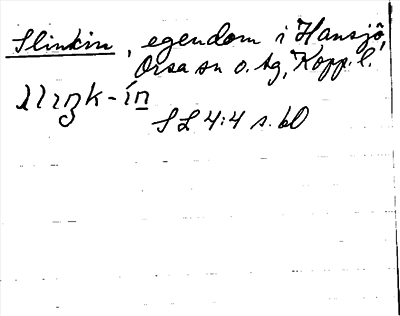 Slinkin, egendom i Hansjö,
Orsa sn o. tg, Kopp. l.
SL 4:4 s. 60